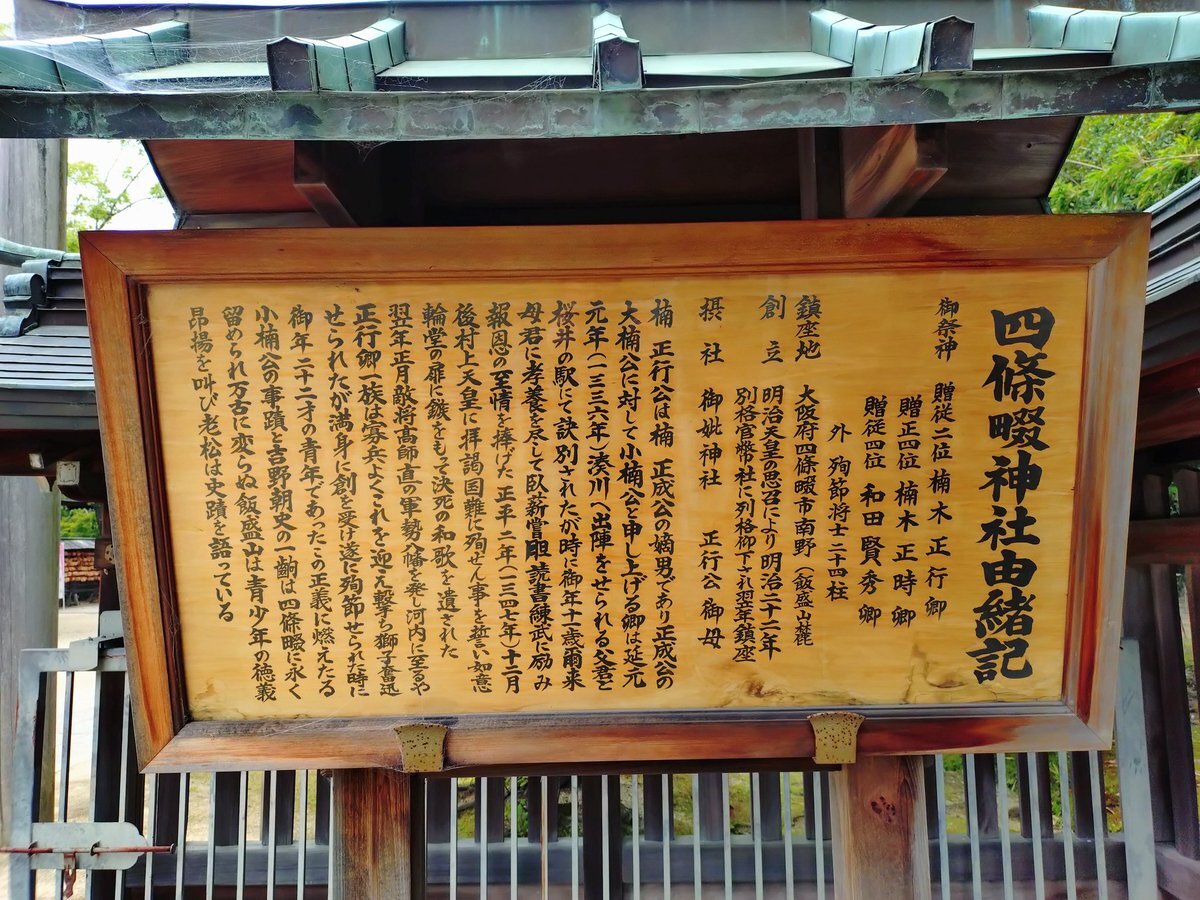 四條畷神社由緒記
御祭神 贈従二位 楠木正行卿
贈正四位 楠木正時卿
贈従四位 和田賢秀卿
外 殉節将士二十四柱
鎮座地 大阪府四條畷市南野(飯盛山麓
創立 明治天皇の思召により明治二十二年
別格官幣社に列格仰下され翌年鎮座
摂社 御妣神社 正行公御母
楠 正行公は楠 正成公の嫡男であり正成公の
大楠公に対して小楠公と申し上げる卿は延元
元年(一三三六年)湊川へ出陣をせられる父君と
桜井の駅にて訣別されたが時に御年十一歳爾来
母君に孝養を尽して臥薪嘗胆読書練武に励み
報恩の至情を捧げた 正平二年(一三四七年)十二月
後村上天皇に拝謁国難に殉せん事を誓い如意
輪堂の扉に鏃をもて決死の和歌を遺された
翌年正月敵将高師直の軍勢八幡を発し河内に至るや
正行卿一族は寡兵よくこれを迎え撃ち獅子奮迅
せられたが満身に創を受け遂に殉節せられた時に
御年二十二才の青年であったこの正義に燃えたる
小楠公の事蹟と吉野朝史の一齣は四條畷に永く
留められ万古に変らぬ飯盛山は青少年の徳義
昂揚を叫び老松は史蹟を語っている